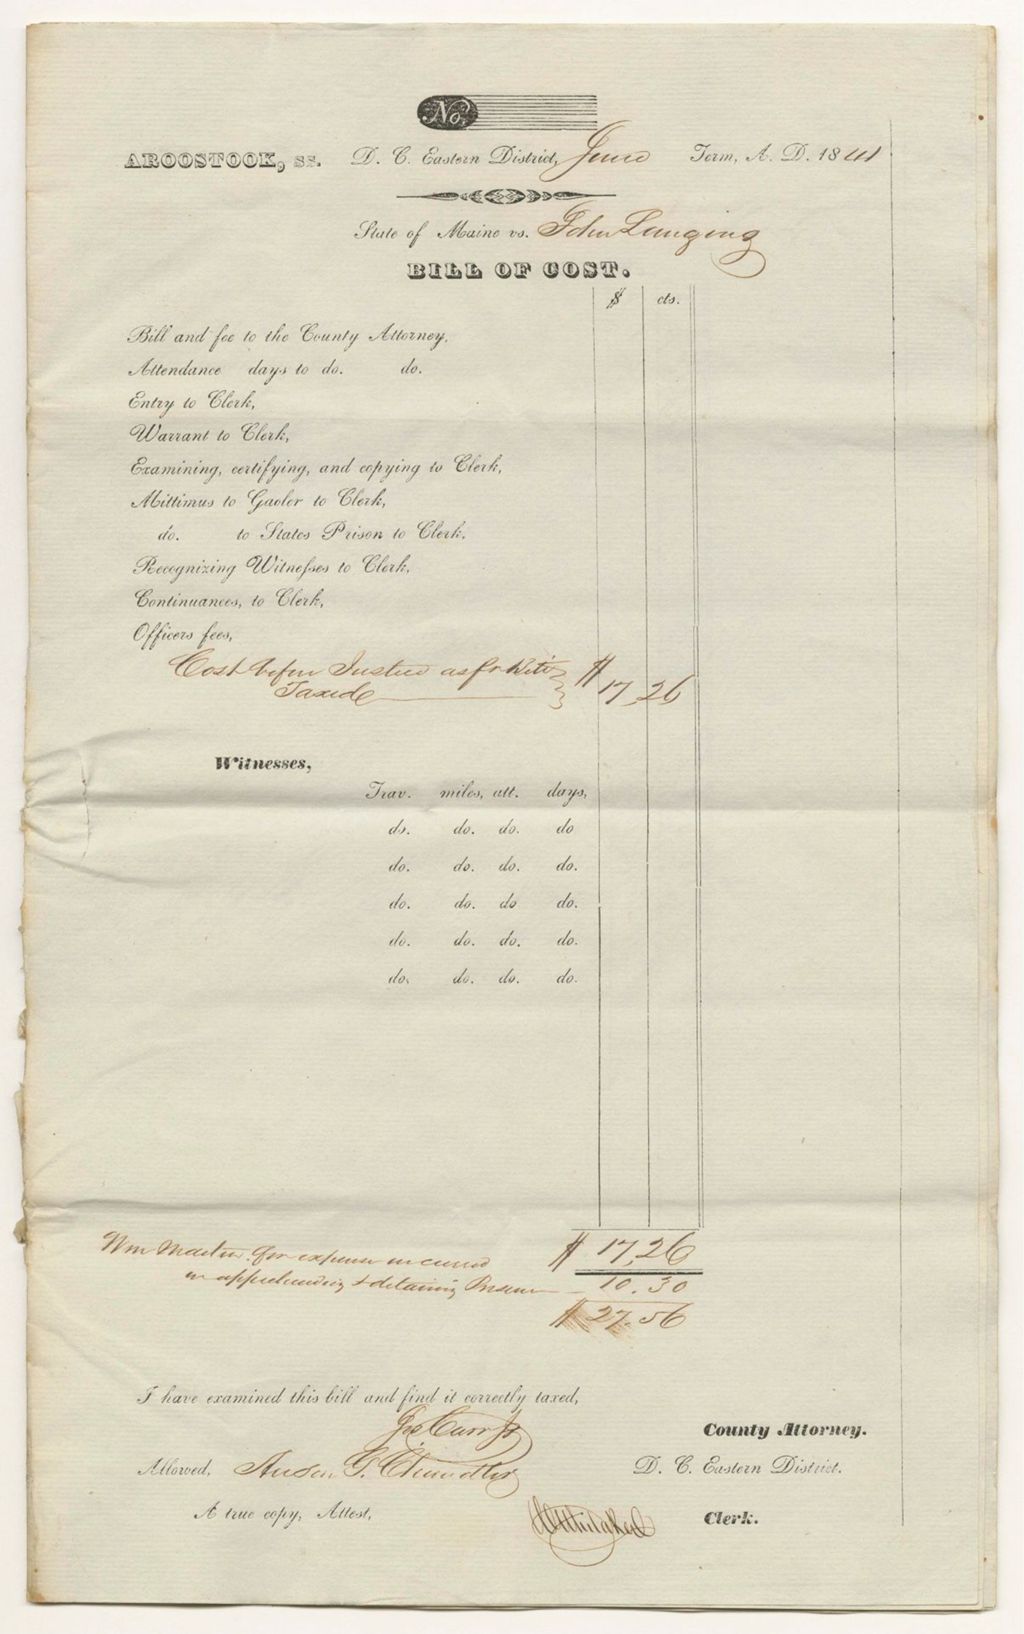 No.
AROOSTOOK, ss. D. C. Eastern District, June Term, A. D. 1841
State of Maine vs. John Lunging
BILL OF COST.
$ cts.
Bill and fee to the County Attorney,
Attendance days to do. do.
Entry to Clerk,
Warrant to Clerk,
Examining, certifying, and copying to Clerk,
Mittimus to Gaoler to Clerk,
do. to States Prison to Clerk,
Recognizing Witnesses to Clerk,
Continuances, to Clerk,
Officers fees,
Cost before Justice as pr
Taxed $ 17,26
Witnesses,
Trav. miles, att. days,
do. do. do. do
do. do. do. do.
do. do. do do.
do. do. do. do.
do. do. do. do.
$ 17,26
Wm for expense incurred
in apprehending & detaining Prisoner 10.30
$ 27.56
I have examined this bill and find it correctly taxed,
Carr Jr County Attorney.
Allowed, Anson G. Chandler D. C. Eastern District.
A true copy, Attest, Clerk.